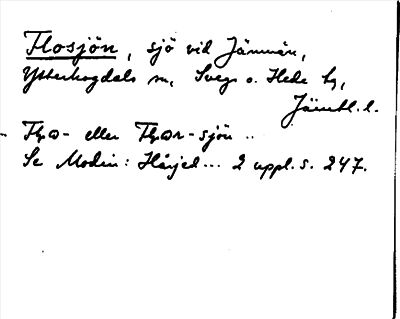 Flosjön, sjö vid Jämnån,
Ytterhogdals sn, Svegs o. Hede hg,
Jämtl. l.
Flo- eller Flon-sjön ..
Se Modin: Härjed... 2 uppl. s. 247.